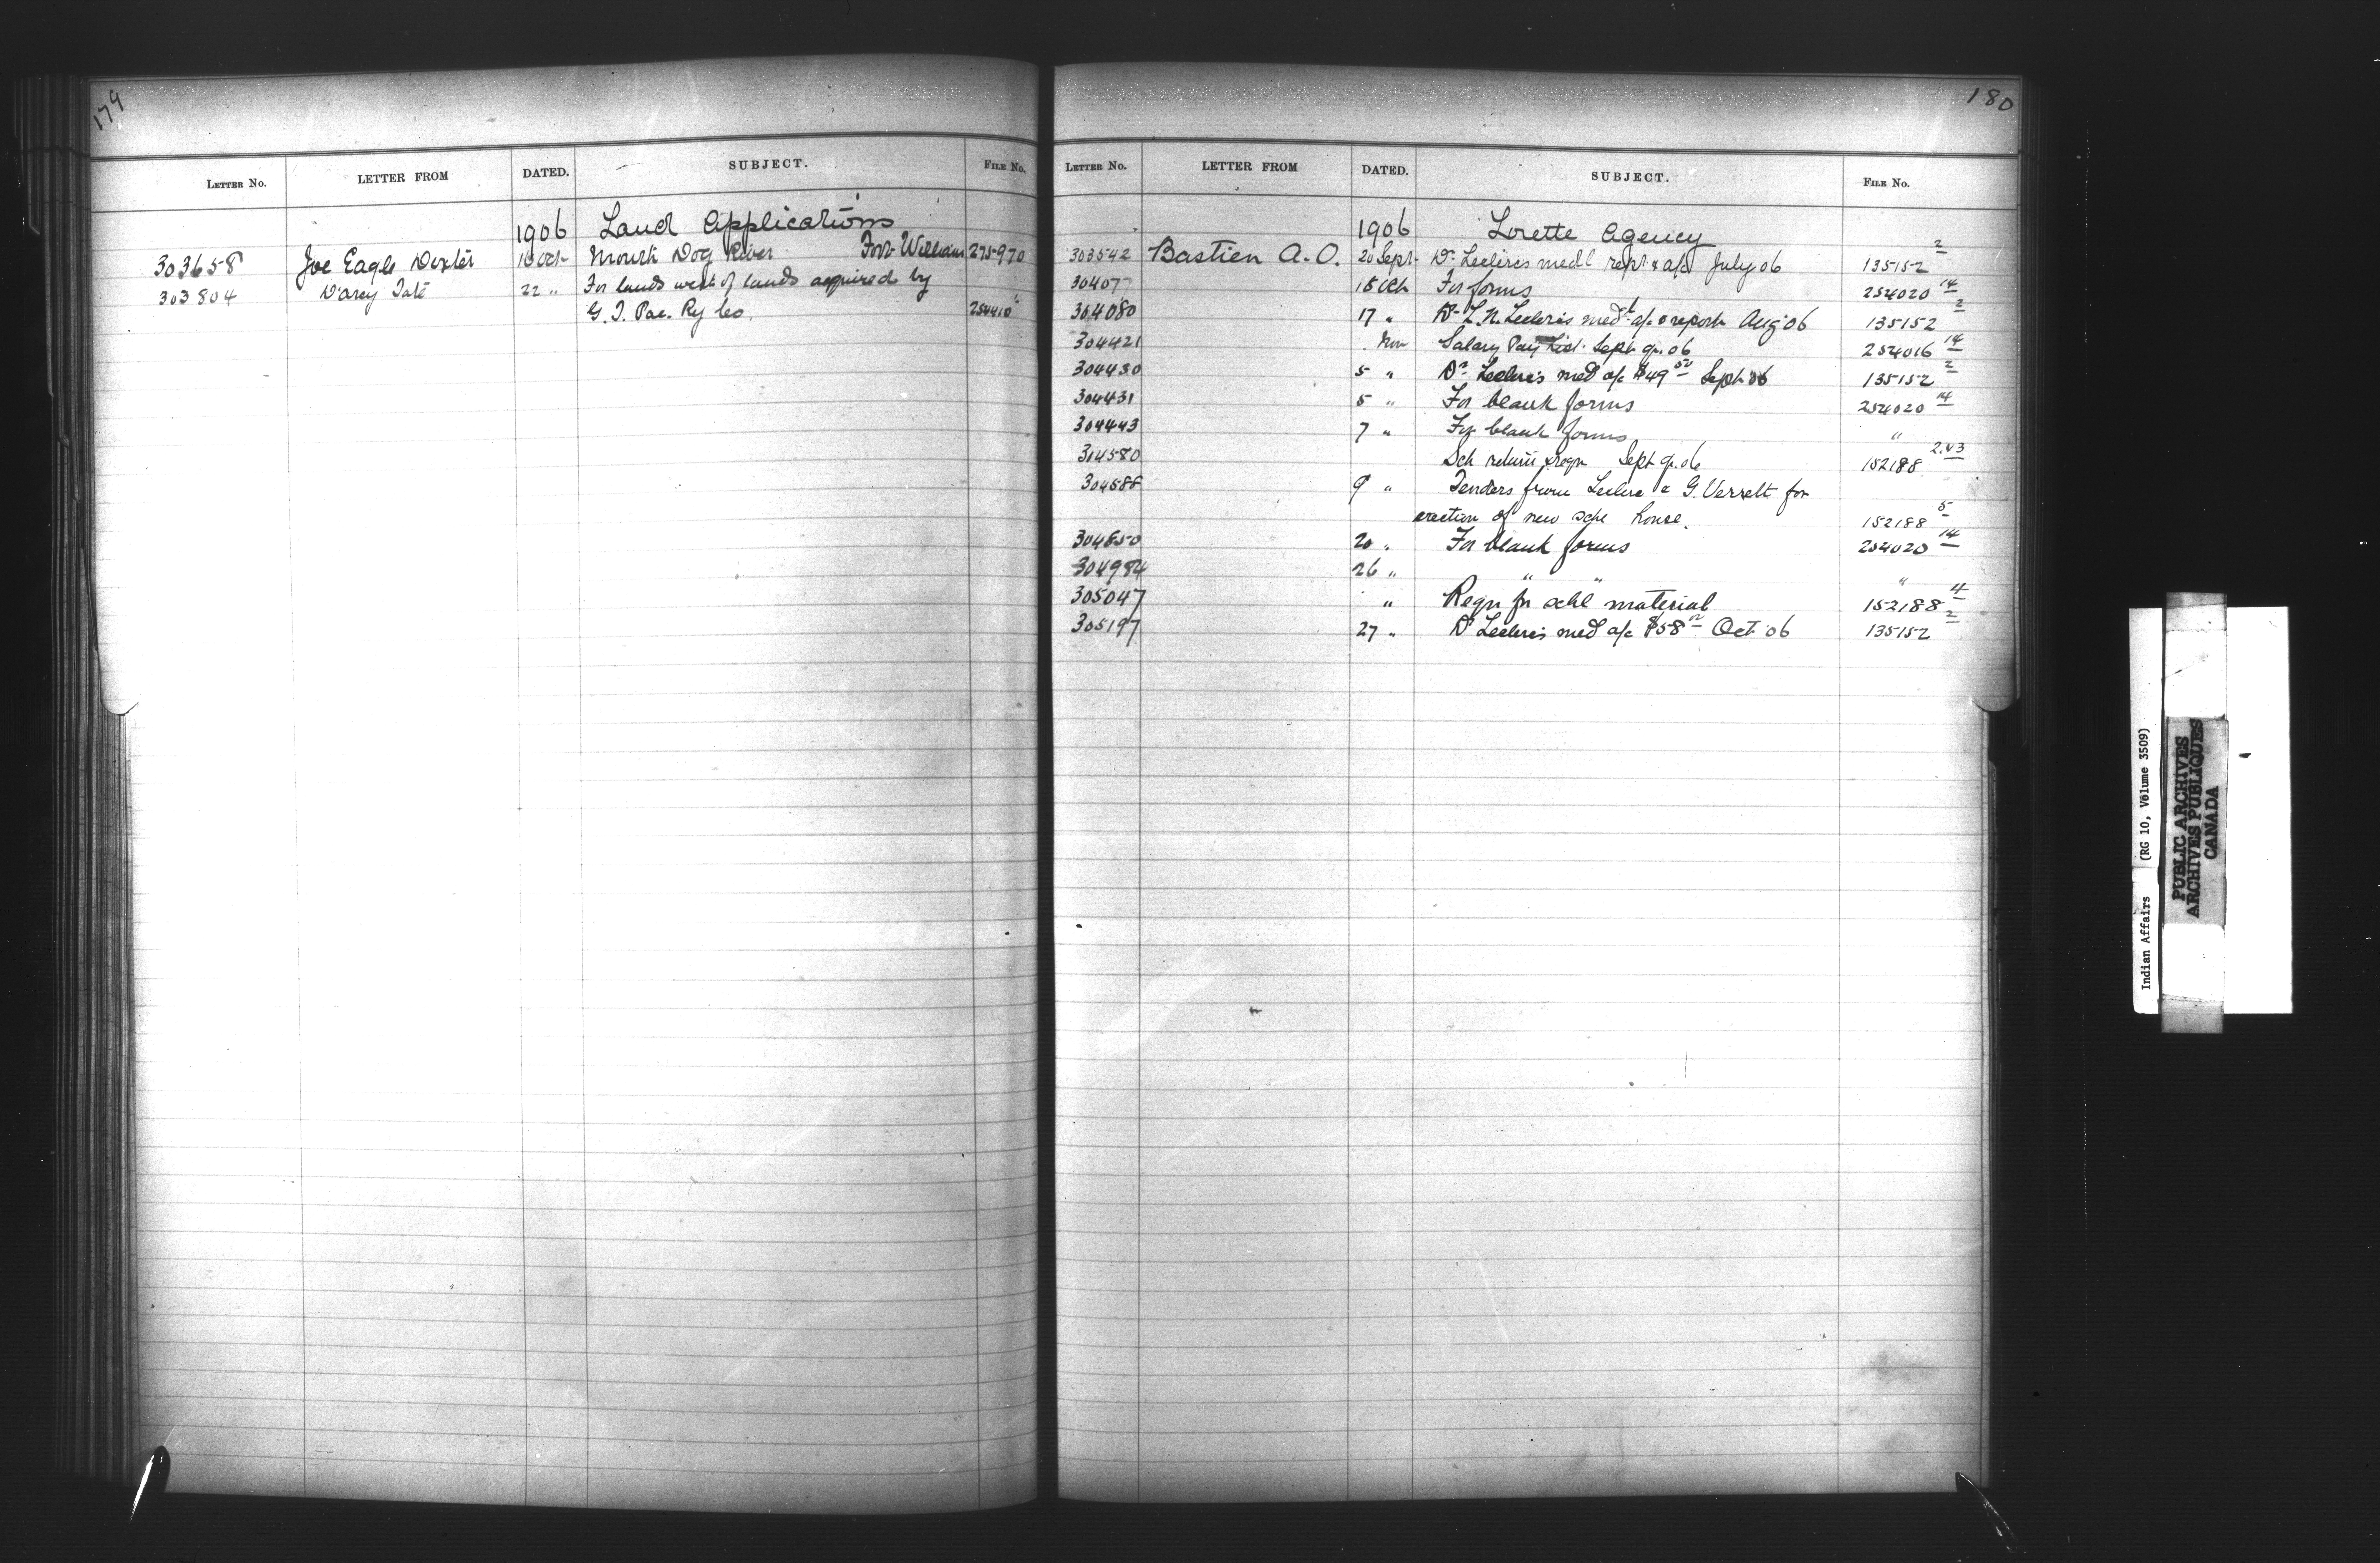 179
LETTER No. LETTER FROM DATED. SUBJECT. FILE No.
1906 Land Applications
303658 Joe Eagle Dexter 18 Oct Mouth Dog River Fort William 275970
303804 D'arcy Tate 22 " For lands west of lands acquired by
G. T. Pac. Ry Co. 254410
180
LETTER No. LETTER FROM DATED. SUBJECT. FILE No.
1906 Lorette Agency
303542 Bastien A. O. 20 Sept Dr Leclercs medl rept & a/c July 06 135152 2
304077 15 Oct For forms 254020 14
304080 17 " Dr L. N. Leclercs medl a/c & report Aug 06 135152 2
304421 Nov Salary Pay List Sept qr. 06 254016 14
304430 5 " Dr Leclerc's med a/c $49 50 Sept 06 135152 2
304431 5 " For blank forms 254020 14
304443 7 " For blank forms "
304580 Sch return & reqn Sept qr. 06 152188 2.43
304588 9 " Tenders from Leclerc & G. Verrett for
erection of new schl house. 152188 5
304850 20 " For blank forms 254020 14
304984 26 " " " "
305047 " Reqn for schl material 152188 4
305197 27 " Dr Leclerc's med a/c $58 Oct 06 135152 2
Indian Affairs (RG 10, Volume 3509)
PUBLIC ARCHIVES
ARCHIVES PUBLIQUES
CANADA